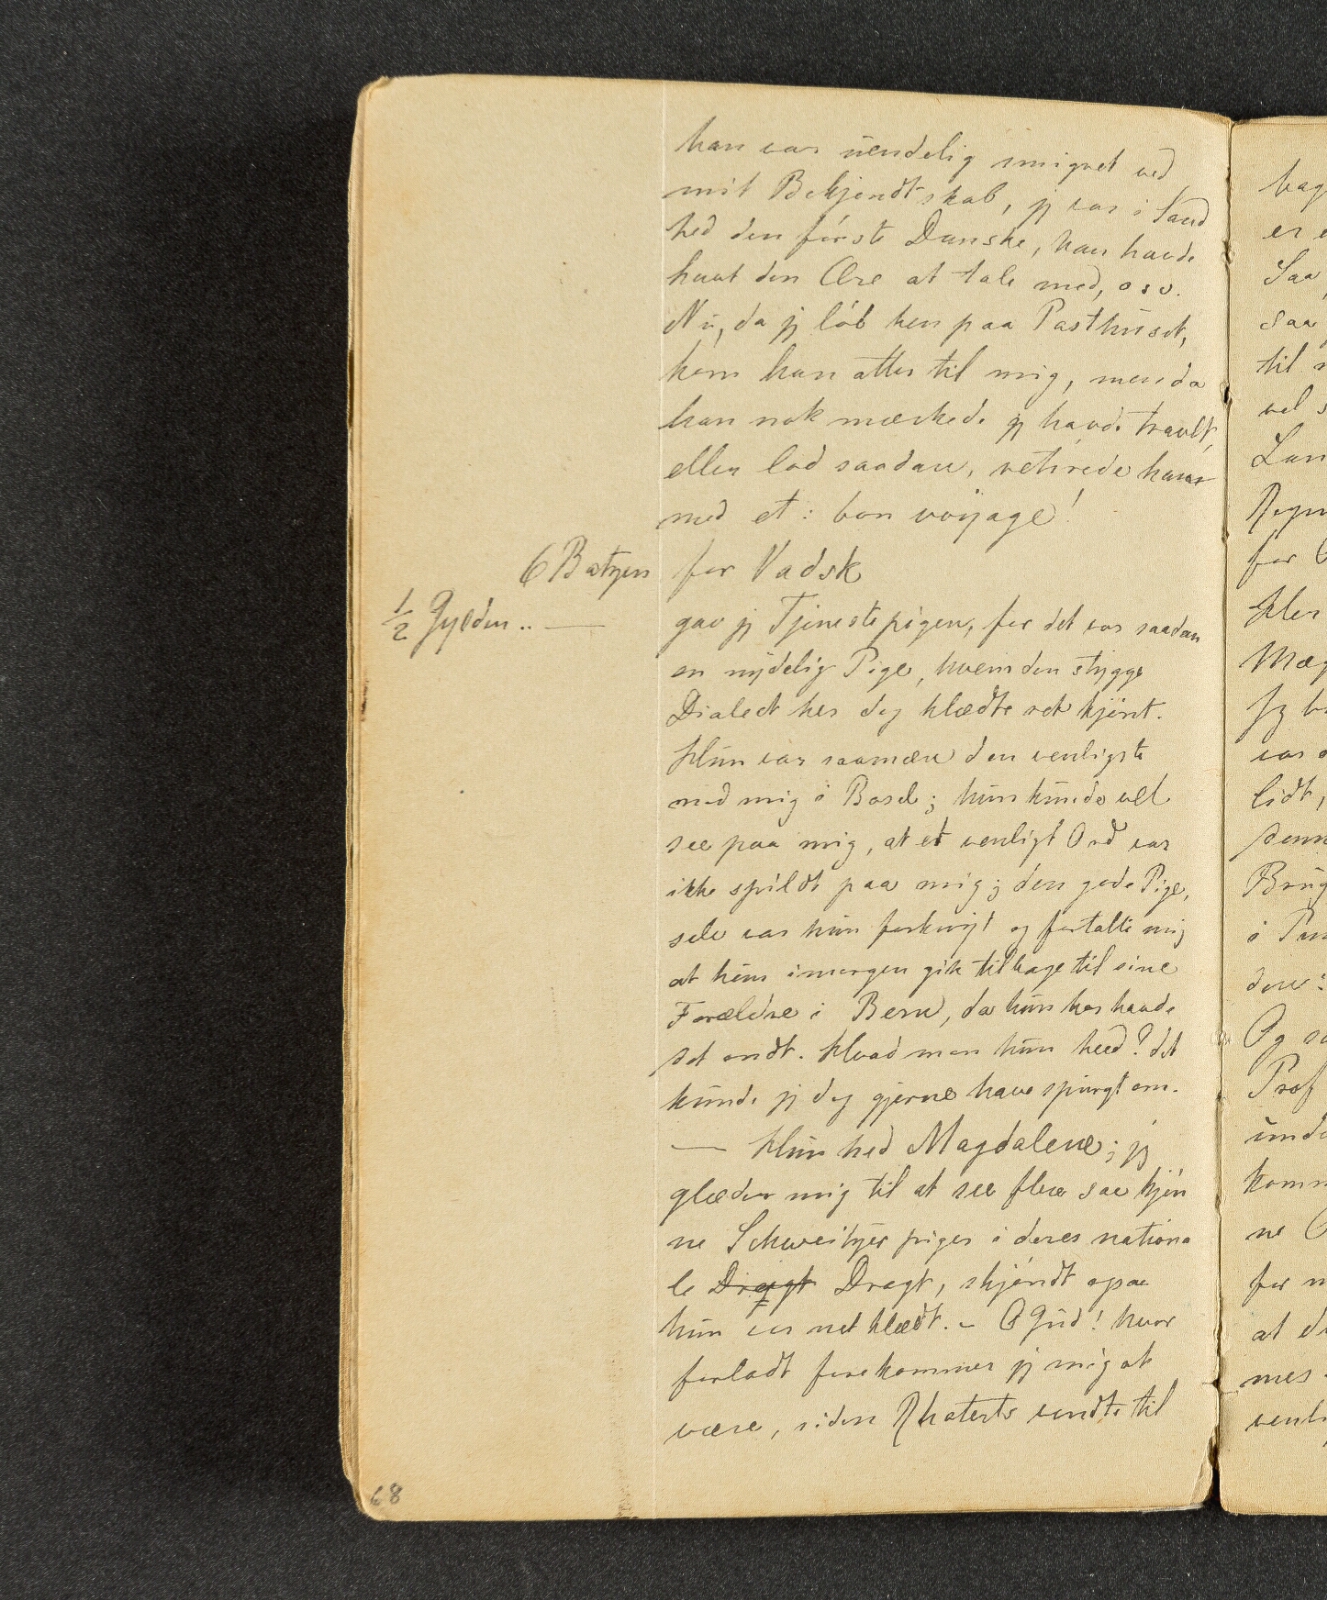 han var uendelig smigret ved
mit Bekjendtskab, jeg var i Sand
hed den første Danske, han havde
havt den Ære at tale med, osv.
Nu, da jeg løb hen paa Posthuset,
kom han atter til mig, men da
han nok mærkede jeg havde travlt,
eller lod saadan, retirede han
med et: bon voyage!
6 Batzen for Vadsk
½ Gylden .. — gav jeg Tjenestepigen, for det var saadan
en nydelig Pige, hvem den stygge
Dialect her dog klædte ret kjönt.
Hun var saamæn den venligste
mod mig i Basel; hun kunde vel
see paa mig, at et venligt Ord var
ikke spildt paa mig; den gode Pige,
selv var hun forknyt og fortalte mig
at hun imorgen gik tilbage til sine
Forældre i Bern, da hun her havde
det ondt. Hvad mon hun heed? det
kunde jeg dog gjerne have spurgt om.
— Hun hed Magdalene; jeg
glæder mig til at see flere saa kjön
ne Schweitzer piger i deres nationa
le Dragt Dragt, skjöndt ogsaa
hun var net klædt. – O Gud! hvor
forladt forekommer jeg mig at
være, siden Rhaterts vendte til
68
bag
er e
Saa
saa
til
vel s
Lan
for
Mæg
Jeg b
var
lidt,
denn
Brug
i
Og sa
Prof
unde
komm
ne
for m
at d
mes
venl